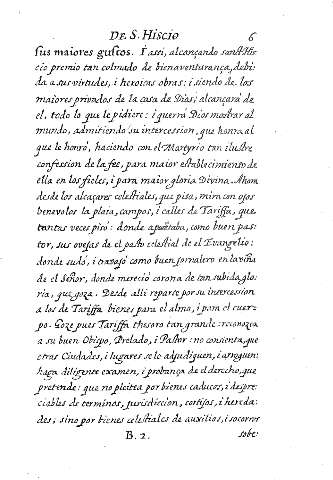 DE S. HISCIO 6
sus maiores gustos. I assi, alcançando sanct His
cio premio tan colmado de bienaventurança, debi
da a sus virtudes, i heroicas obras: i siendo de los
maiores privados de la casa de Dios; alcançarà de
el, todo lo que le pidiere: i querrà Dios mostrar al
mundo, admitiendo su intercession, que honra al
que le honrò, haciendo con el Martyrio tan ilustre
confession de la fee, para maior establecimiento de
ella en los fieles, i para maior gloria Divina. Ahora
desde los alcaçares celestiales, que pisa, mira con ojos
benevolos la plaia, campos, i calles de Tariffa, que
tantas veces pisò: donde apacentaba, como buen pas
tor, sus ovejas de el pasto celestial de el Evangelio:
donde sudò, i trabajò como buen jornalero en la viña
de el Señor, donde mereciò corona de tan subida glo
ria, que goza. Desde alli reparte por su intercession
a los de Tariffa bienes para el alma, i para el cuer
po. Goze pues Tariffa thesoro tan grande: reconozca
a su buen Obispo, Prelado, i Pastor: no consienta, que
otras Ciudades, i lugares se le adjudiquen, i atribuien:
haga diligente examen, i probança de el derecho, que
pretende: que no pleitea por bienes caducos, i despre
ciables de terminos, jurisdiccion, cortijos, i hereda
des; sino por bienes celestiales de auxilios, i socorros
B. 2. sobe